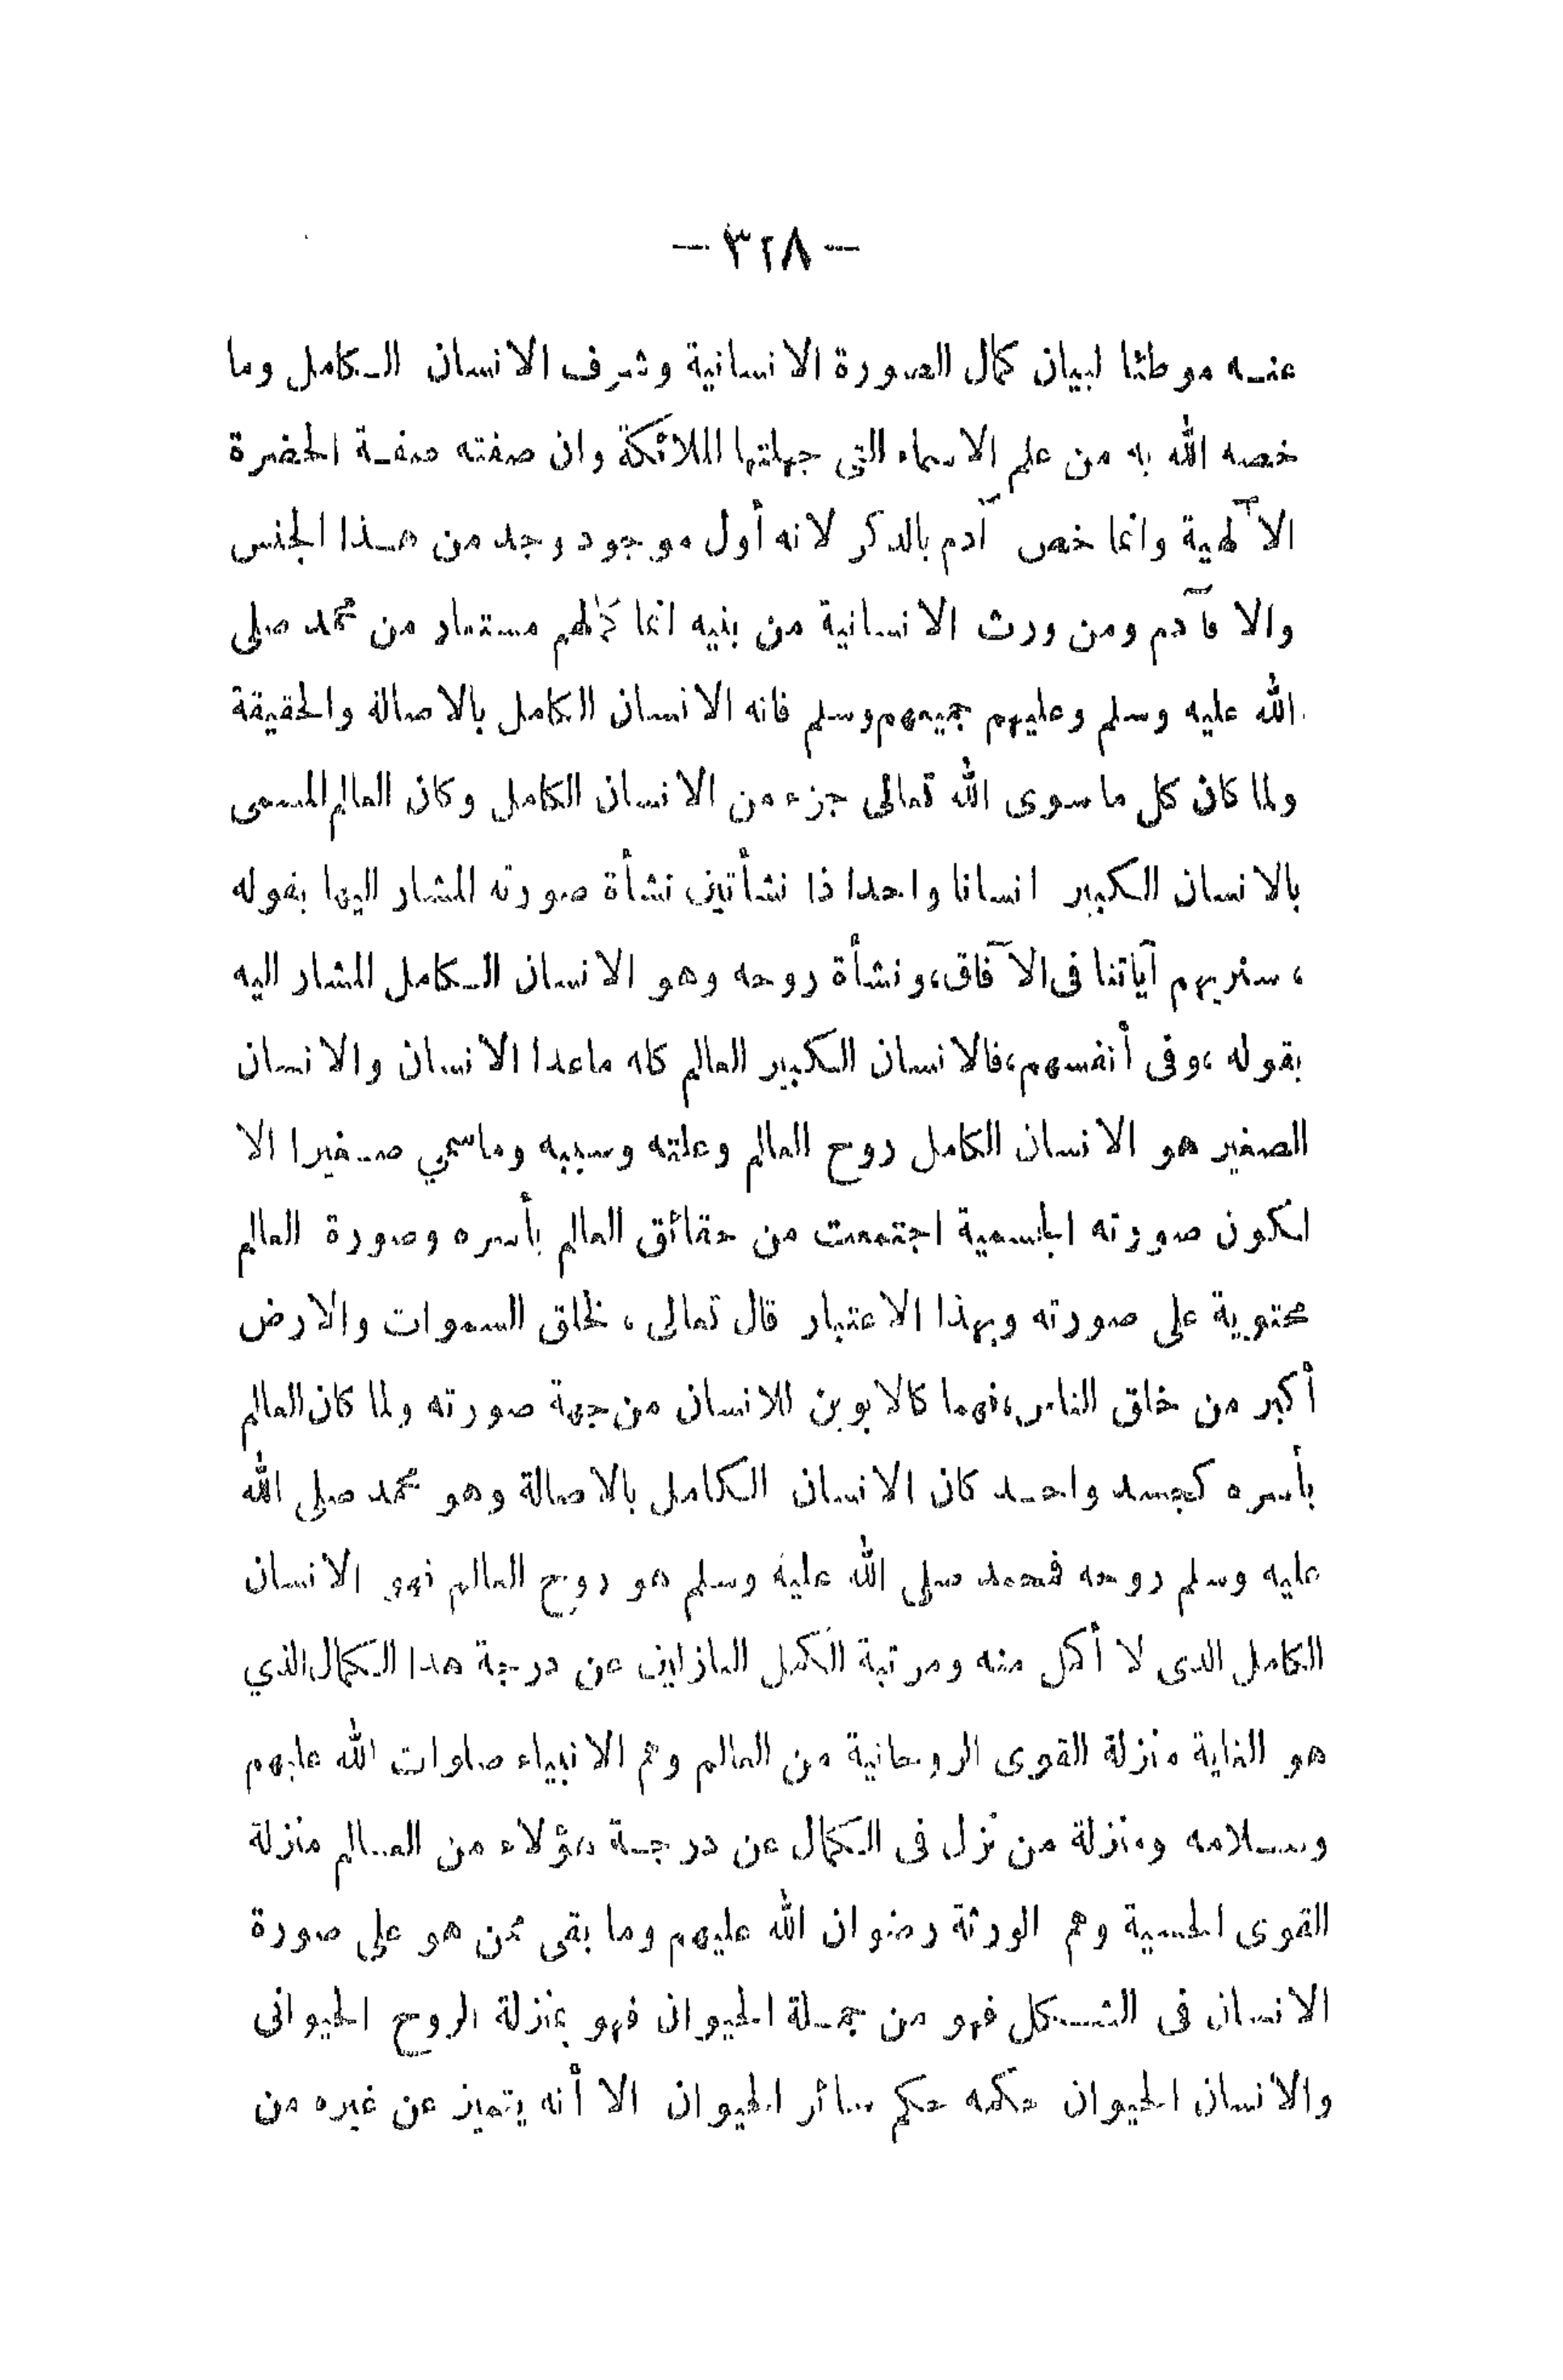 — ٣٢٨ —
عنه موطئا لبيان كمال الصورة الانسانية وشرف الانسان الكامل وما
خصه الله به من علم الاسماء التي جهلتها الملائكة وان صفته صفة الحضرة
الآلهية وانما خص آدم بالذكر لانه أول موجود وجد من هذا الجنس
والا فآدم ومن ورث الانسانية من بنيه انما كمالهم مستعار من محمد صلى
الله عليه وسلم وعليهم جميعهم وسلم فانه الانسان الكامل بالاصالة والحقيقة
ولما كان كل ما سوى الله تعالى جزء من الانسان الكامل وكان العالم المسمى
بالانسان الكبير انسانا واحدا ذا نشأتين نشأة صورته المشار اليها بقوله
، سنريهم آياتنا فى الآفاق، ونشأة روحه وهو الانسان الكامل المشار اليه
بقوله ،وفى أنفسهم، فالانسان الكبير العالم كله ماعدا الانسان والانسان
الصغير هو الانسان الكامل روح العالم وعلته وسببه وماسمي صغيرا الا
لكون صورته الجسمية اجتمعت من حقائق العالم بأسره وصورة العالم
محتوية على صورته وبهذا الاعتبار قال تعالى ، لخلق السموات والارض
أكبر من خلق الناس، فهما كالابوين للانسان من جهة صورته ولما كان العالم
بأسره كجسد واحد كان الانسان الكامل بالاصالة وهو محمد صلى الله
عليه وسلم روحه فمحمد صلى الله عليه وسلم هو روح العالم فهو الانسان
الكامل الذى لا أكمل منه ومرتبة الكمل النازلين عن درجة هذا الكمال الذي
هو الغاية منزلة القوى الروحانية من العالم وهم الانبياء صلوات الله عليهم
وسلامه ومنزلة من نزل فى الكمال عن درجة هؤلاء من العالم منزلة
القوى الحسية وهم الورثة رضوان الله عليهم وما بقى ممن هو على صورة
الانسان فى الشكل فهو من جملة الحيوان فهو بمنزلة الروح الحيوانى
والانسان الحيوان حكمه حكم سائر الحيوان الا أنه يتميز عن غيره من